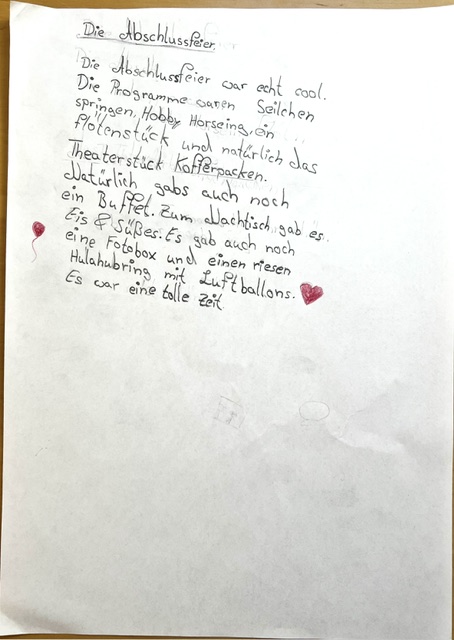 Die Abschlussfeier.
Die Abschlussfeier war echt cool.
Die Programme waren Seilchen
springen, Hobby Horseing, ein
flötenstück und natürlich das
Theaterstück Kofferpacken.
Natürlich gabs auch noch
ein Buffet. Zum Nachtisch gab es
Eis & Süßes. Es gab auch noch
eine Fotobox und einen riesen
Hulahubring mit Luftballons.
Es war eine tolle Zeit